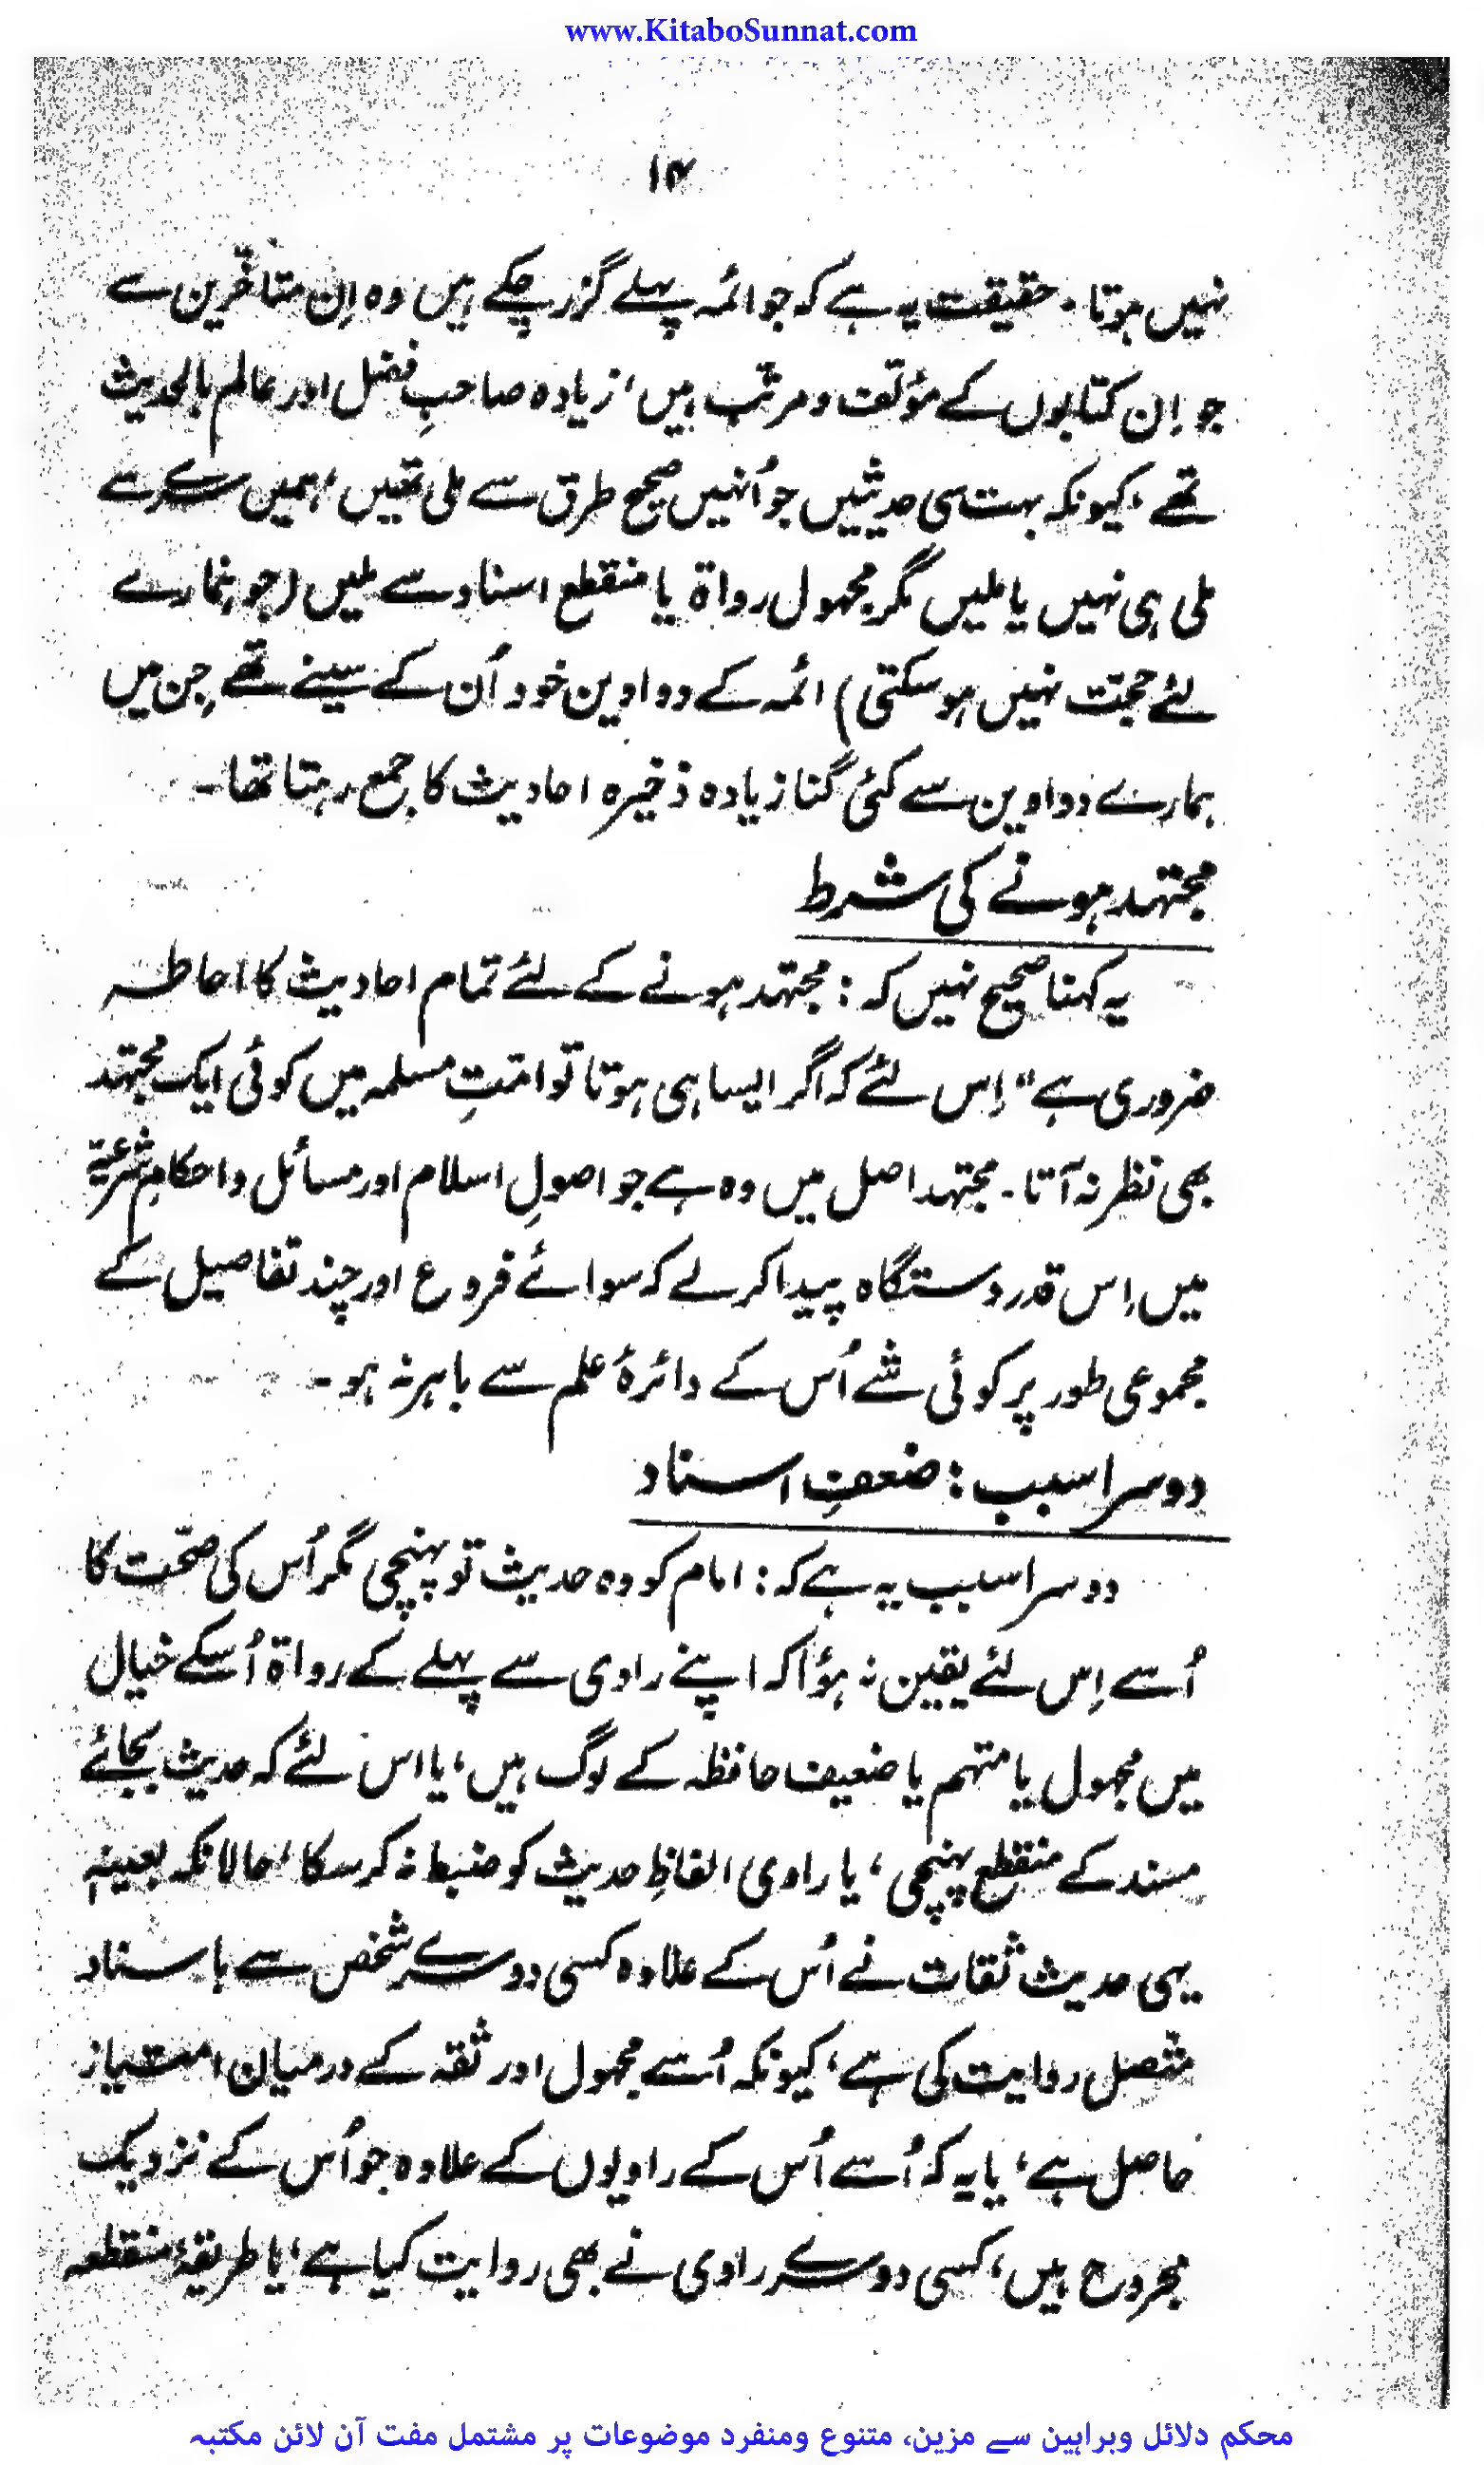 www.KitaboSunnat.com
۱۴
نہیں ہوتا۔ حقیقت یہ ہے کہ جو ائمہ پہلے گزر چکے ہیں وہ اِن متاخّرین سے
جو اِن کتابوں کے مؤلّف و مرتّب ہیں، زیادہ صاحبِ فضل اور عالم بالحدیث
تھے، کیونکہ بہت سی حدیثیں جو اُنہیں صحیح طرق سے ملی تھیں، ہمیں سرے سے
ملی ہی نہیں یا ملیں مگر مجہول رواۃ یا منقطع اسناد سے ملیں (جو ہمارے
لئے حجّت نہیں ہو سکتی) ائمہ کے دواوین خود اُن کے سینے تھے جِن میں
ہمارے دواوین سے کئی گنا زیادہ ذخیرہ احادیث کا جمع رہتا تھا۔
مجتہد ہونے کی شرط
یہ کہنا صحیح نہیں کہ : مجتہد ہونے کے لئے تمام احادیث کا احاطہ
ضروری ہے" اِس لئے کہ اگر ایسا ہی ہوتا تو امّتِ مسلمہ میں کوئی ایک مجتہد
بھی نظر نہ آتا۔ مجتہد اصل میں وہ ہے جو اصولِ اسلام اور مسائل و احکامِ شرعیّہ
میں اِس قدر دستگاہ پیدا کر لے کہ سوائے فروع اور چند تفاصیل کے
مجموعی طور پر کوئی شئے اُس کے دائرۂ علم سے باہر نہ ہو۔
دوسرا سبب : ضعفِ اسناد
دوسرا سبب یہ ہے کہ : امام کو وہ حدیث تو پہنچی مگر اُس کی صحّت کا
اُسے اِس لئے یقین نہ ہؤا کہ اپنے راوی سے پہلے کے رواۃ اُسکے خیال
میں مجہول یا متہم یا ضعیف حافظہ کے لوگ ہیں، یا اس لئے کہ حدیث بجائے
مسند کے منقطع پہنچی، یا راوی الفاظِ حدیث کو ضبط نہ کر سکا، حالانکہ بعینہٖ
یہی حدیث ثقات نے اُس کے علاوہ کسی دوسرے شخص سے باسناد
متّصل روایت کی ہے، کیونکہ اُسے مجہول اور ثقہ کے درمیان امتیاز
حاصل ہے، یا یہ کہ اُسے اُس کے راویوں کے علاوہ جو اُس کے نزدیک
مجروح ہیں، کسی دوسرے راوی نے بھی روایت کیا ہے، یا طریقۂ منقطعہ
محکم دلائل وبراہین سے مزین، متنوع ومنفرد موضوعات پر مشتمل مفت آن لائن مکتبہ